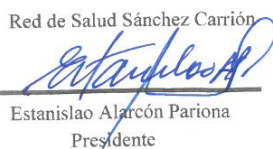 Red de Salud Sánchez Carrión
Estanislao Alarcón Pariona
Presidente